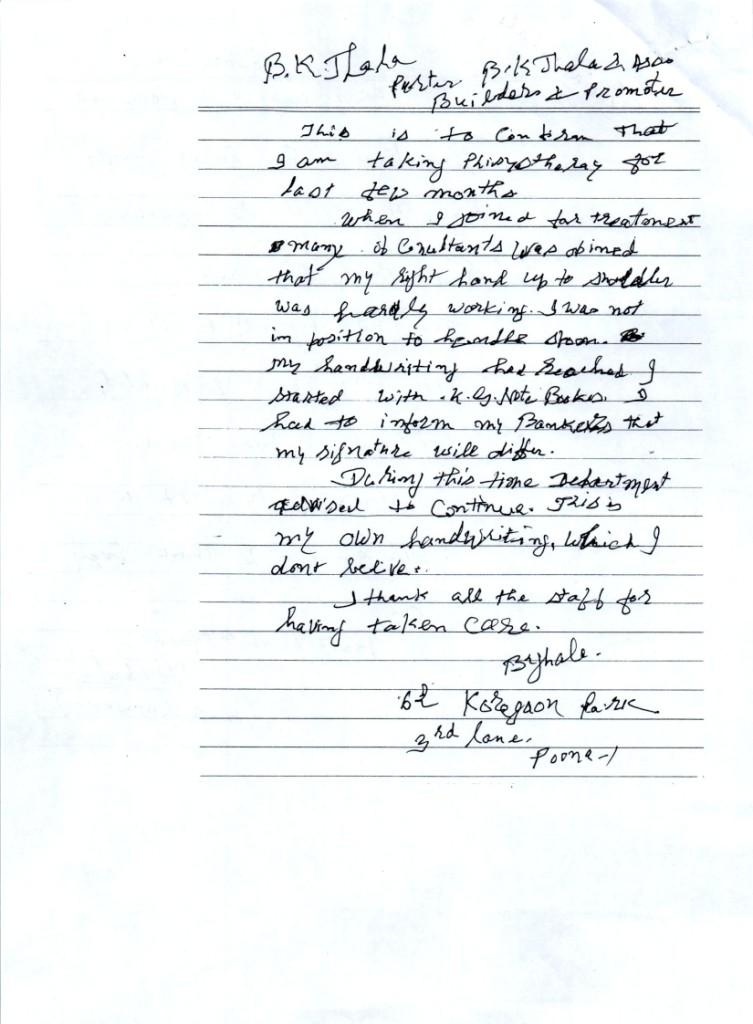 B.K. Thala
Parter B.K Thala & Asso
Builders & Promoter
This is to Confirm that
I am taking Phisyotheray for
last few months
When I joined for treatment
many of Conultants was
that my right hand up to
was hardly working. I was not
in position to handle spoon.
my handwriting had reached I
started with K.G. Note Books. I
had to inform my Bankers that
my signature will differ.
During this time Department
advised to Continue. This is
my own handwriting, which I
dont
I thank all the staff for
having taken care.
Koregaon Park
3rd lane.
Poona-1